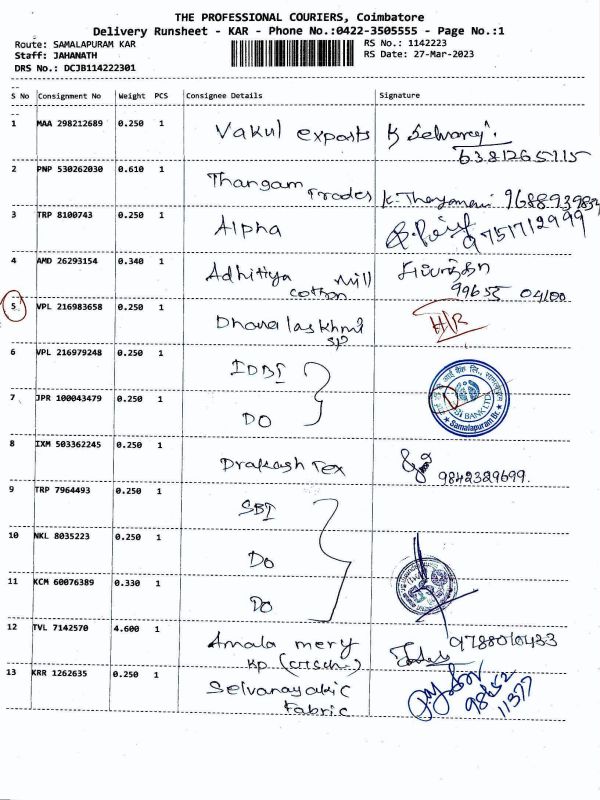 THE PROFESSIONAL COURIERS, Coimbatore
Delivery Runsheet - KAR - Phone No.:0422-3505555 - Page No.:1
Route: SAMALAPURAM KAR
RS No.: 1142223
Staff: JAHANATH
RS Date: 27-Mar-2023
DRS No.: DCJB114222301
S No Consignment No Weight PCS Consignee Details Signature
1 MAA 298212689 0.250 1 Vakul exports K Selvaraj
2 PNP 530262030 0.610 1 Thangam Trades
3 TRP 8100743 0.250 1 Alpha 9751712999
4 AMD 26293154 0.340 1 Adhitiya mill
cotton 99655 04100
5 VPL 216983658 0.250 1 Dhanalaskhmi
SP
6 VPL 216979248 0.250 1 IDBI
7 JPR 100043479 0.250 1 DO
BANK LTD
Samalapuram Br.
8 IXM 503362245 0.250 1 Prakash Tex 9842329699
9 TRP 7964493 0.250 1 SBI
10 NKL 8035223 0.250 1 DO
11 KCM 60076389 0.330 1 DO
12 TVL 7142570 4.600 1 Amala mery
KP
13 KRR 1262635 0.250 1 Selvanayakic
Fabric
98652
11377